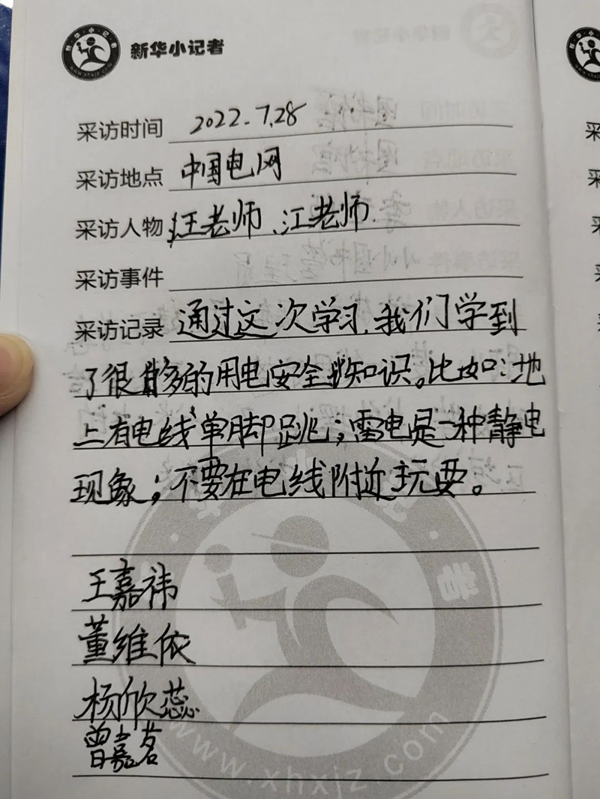 新华小记者
采访时间 2022.7.28
采访地点 中国电网
采访人物 汪老师、江老师
采访事件
采访记录 通过这次学习,我们学到
了很多的用电安全知识。比如:地
上有电线,单脚跳;雷电是一种静电
现象;不要在电线附近玩耍。
王嘉祎
董维依
杨欣蕊
曾嘉茗
www.xhxjz.com